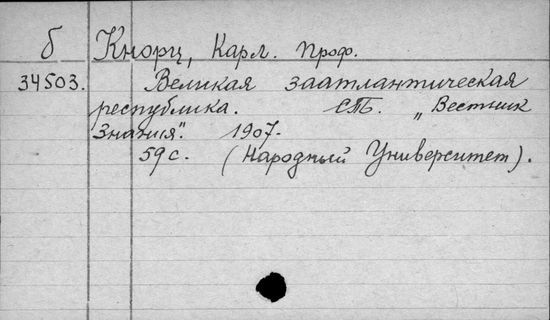 б Кнорц, Карл. Проф.
34503. Великая заатлантическая
республика. СПБ. „Вестник
Знания". 1907.
59 с. (Народный Университет).